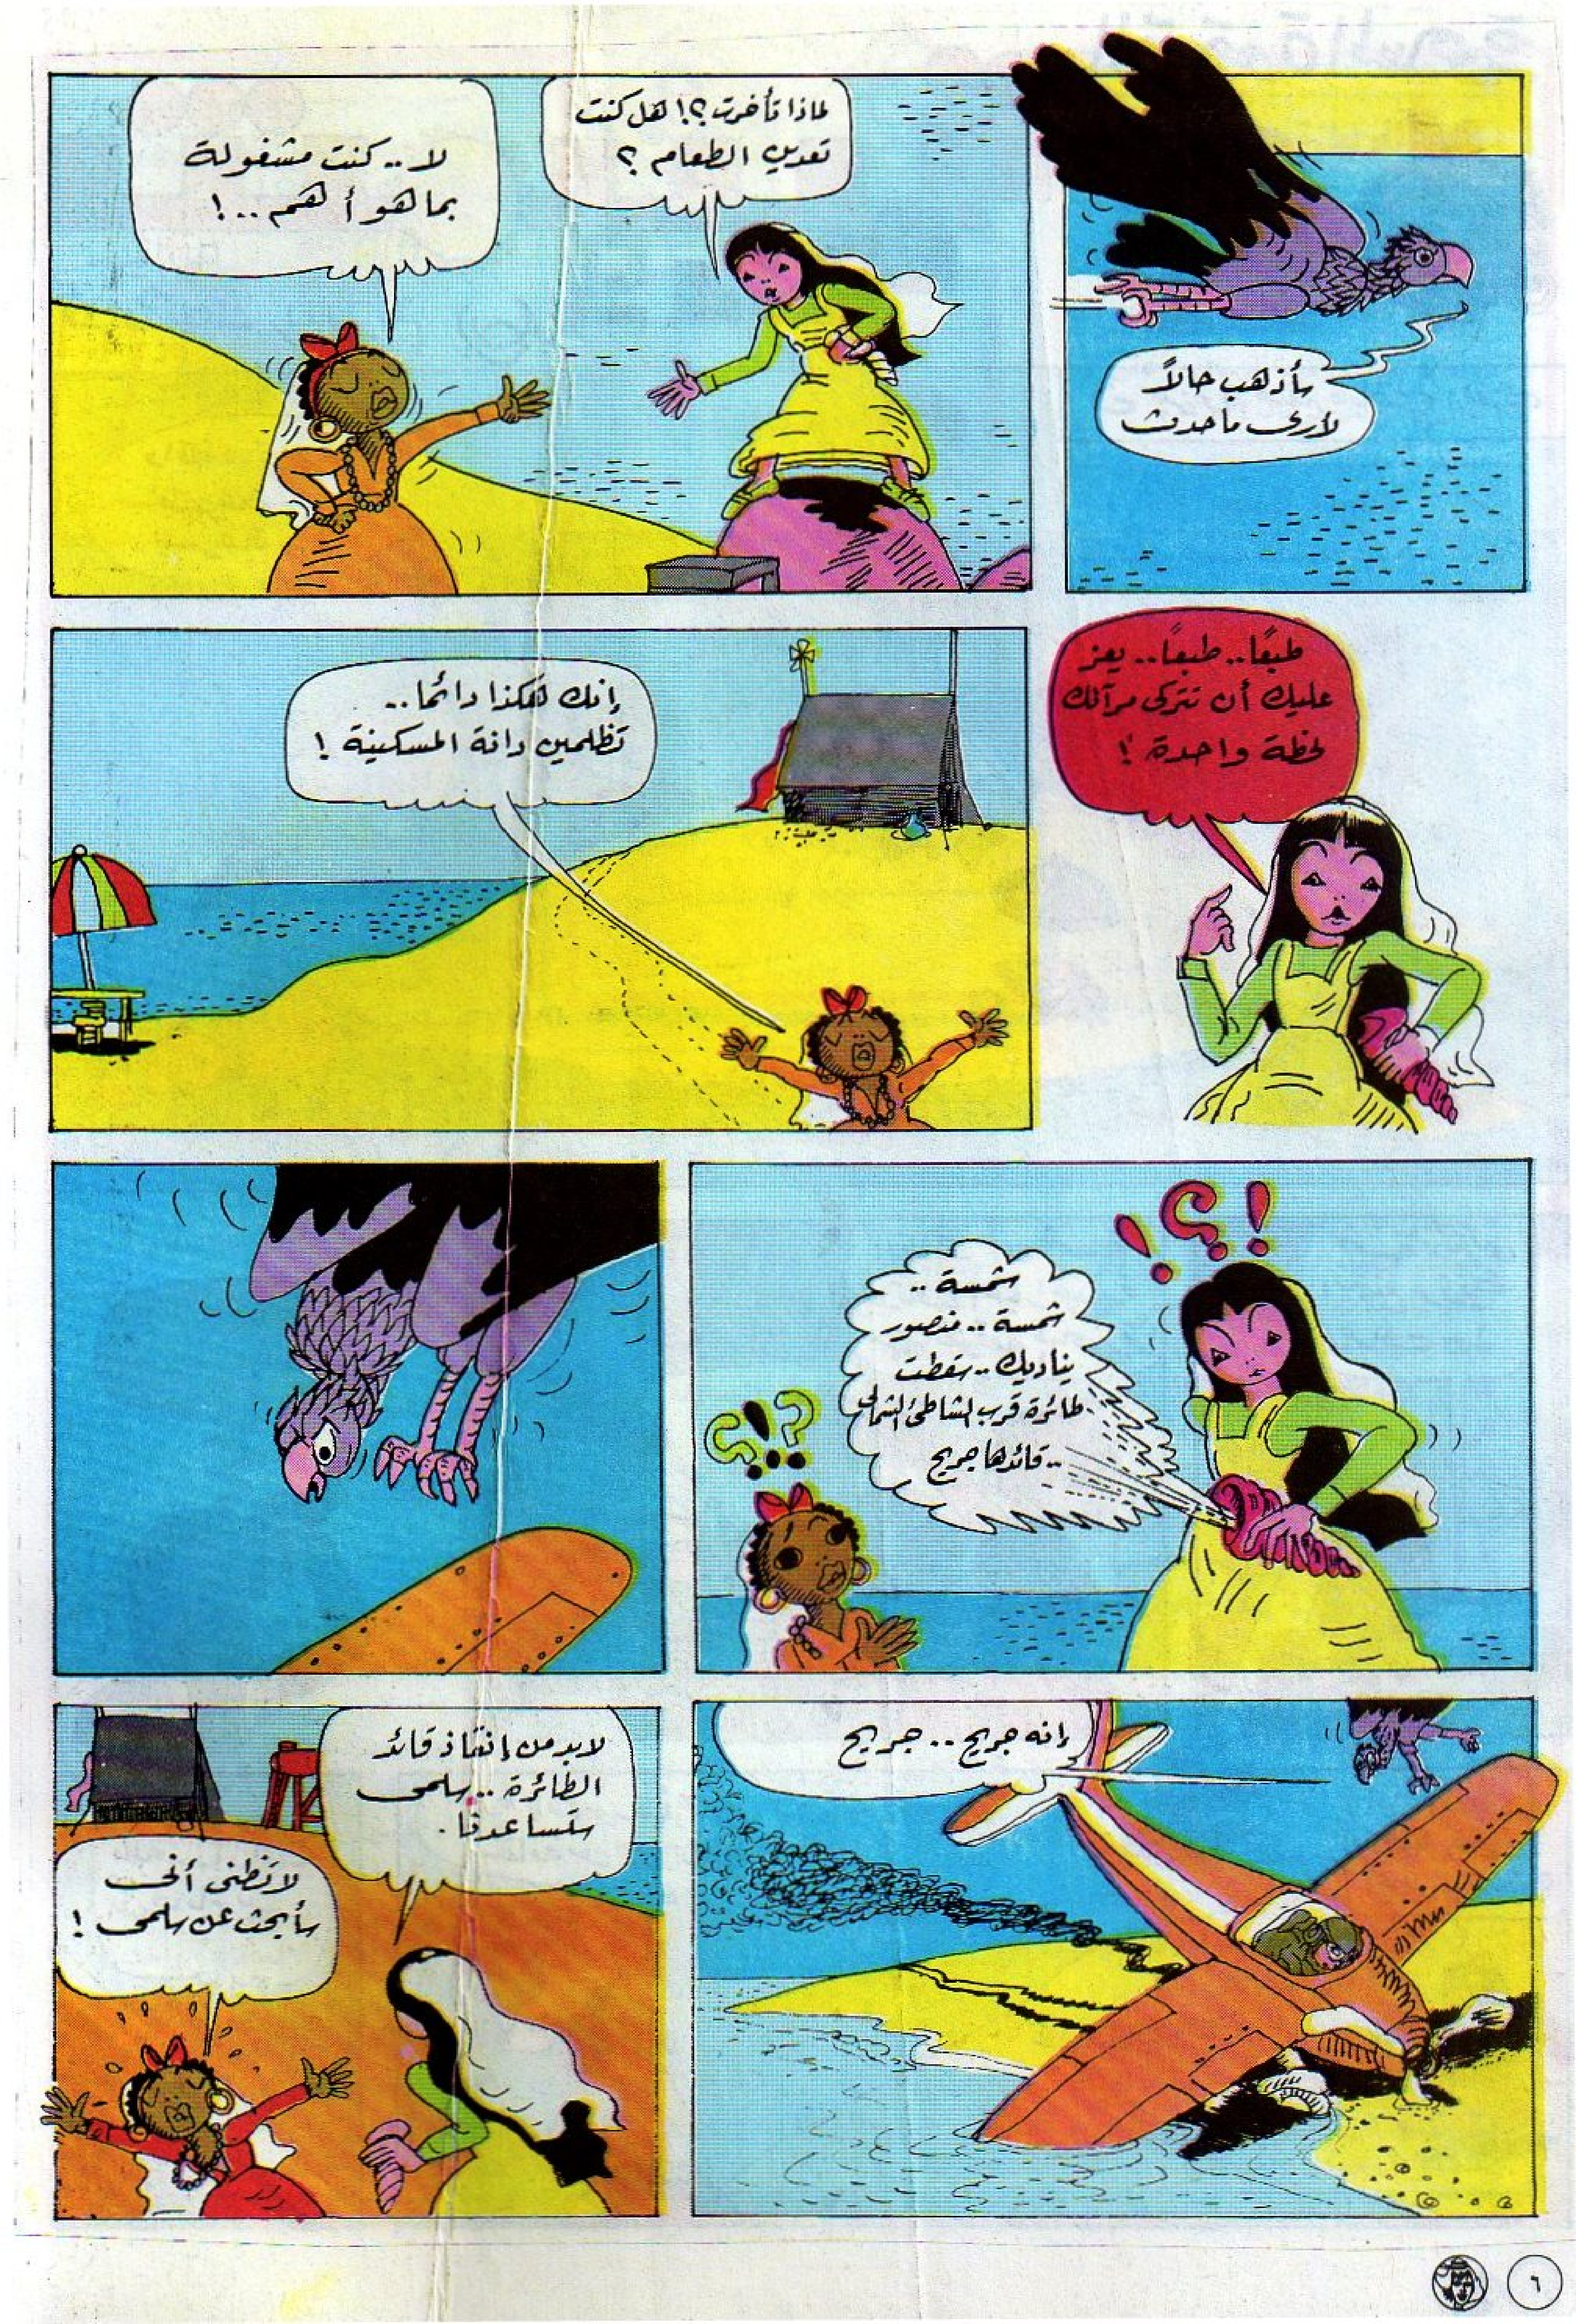 سأذهب حالاً
لأرى ما حدث
لماذا تأخرت؟! هل كنت
تعدين الطعام؟
لا.. كنت مشغولة
بما هو أهم..!
طبعًا.. طبعًا.. يعز
عليك أن تتركي مرآتك
لحظة واحدة!
إنك هكذا دائمًا..
تظلمين دانة المسكينة!
!؟!
شمسة..
شمسة.. منصور
يناديك.. سقطت
طائرة قرب الشاطئ الشمالى
.. قائدها جريح
؟!؟
إنه جريح.. جريح
لابد من إنقاذ قائد
الطائرة.. سلمى
ستساعدنا.
لا تظنى أنى
سأبحث عن سلمى!
٦